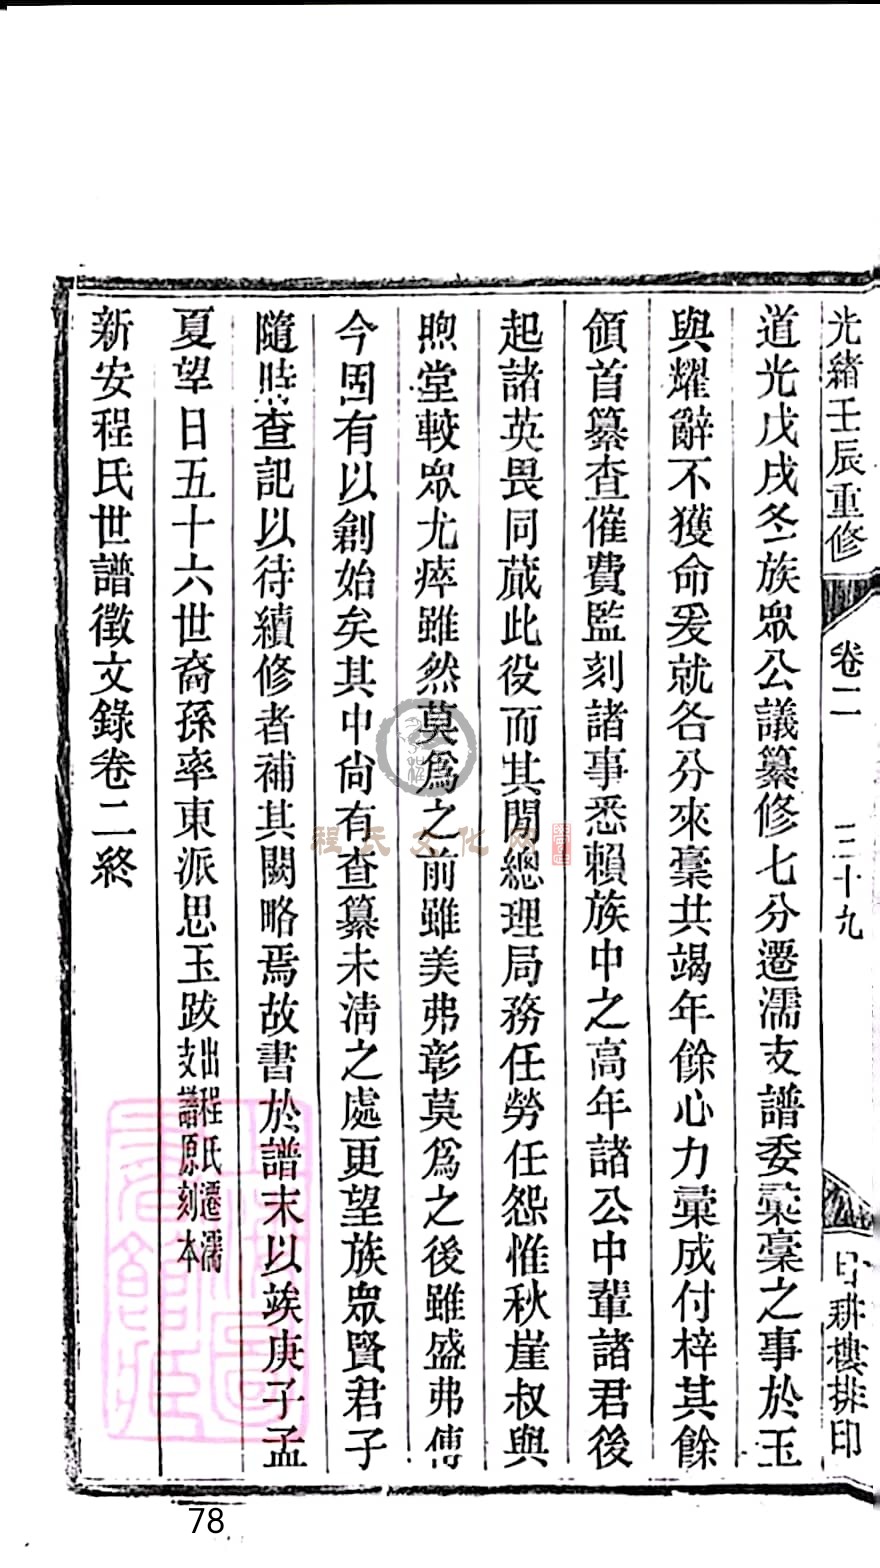 光緒壬辰重修
卷二
三十九
耕樓排印
道光戊戌冬族眾公議纂修七分遷濡支譜委彙稾之事於玉
與耀辭不獲命爰就各分來稾共竭年餘心力彙成付梓其餘
領首纂查催費監刻諸事悉賴族中之高年諸公中輩諸君後
起諸英畏同蕆此役而其閒總理局務任勞任怨惟秋崖叔與
煦堂較眾尤瘁雖然莫爲之前雖美弗彰莫爲之後雖盛弗傳
今固有以創始矣其中尙有查纂未淸之處更望族眾賢君子
隨時查記以待續修者補其闕略焉故書於譜末以竢庚子孟
夏望日五十六世裔孫率東派思玉跋出程氏遷濡
支譜原刻本
新安程氏世譜徵文錄卷二終
程氏文化网
78